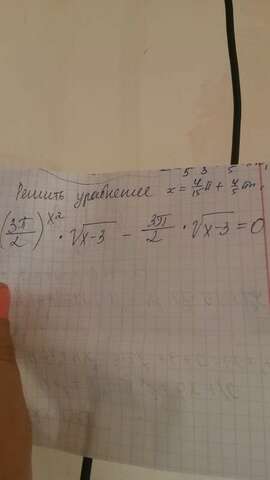 5 3 5
Решить уравнение x = 4/15 π + 4/5 πn,
(3π/2)^x² · √x-3 - 3π/2 · √x-3 = 0